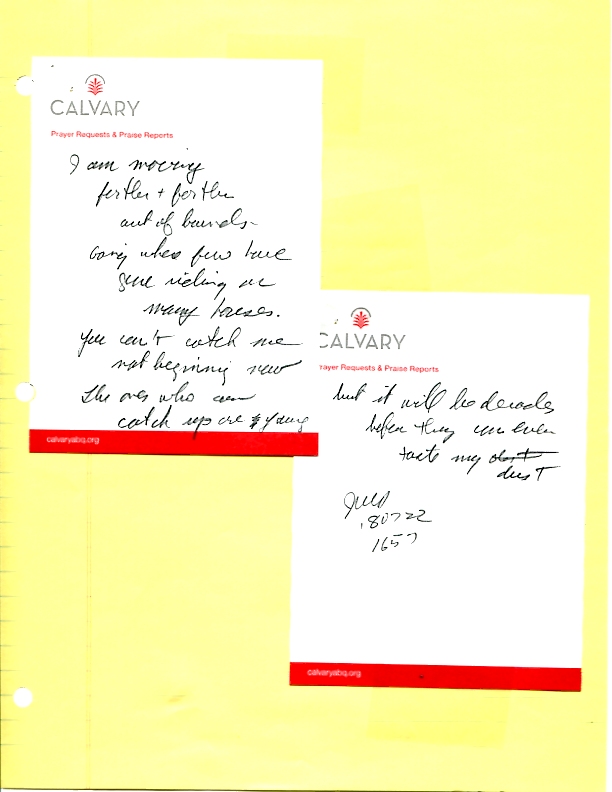 CALVARY
Prayer Requests & Praise Reports
I am moving
farther + farther
out of bounds
Going where few have
gone riding on
many horses.
You can't catch me
not beginning now
The ones who can
catch up are young
calvaryabq.org
CALVARY
Prayer Requests & Praise Reports
but it will be decades
before they can even
taste my
dust
.80722
1657
calvaryabq.org